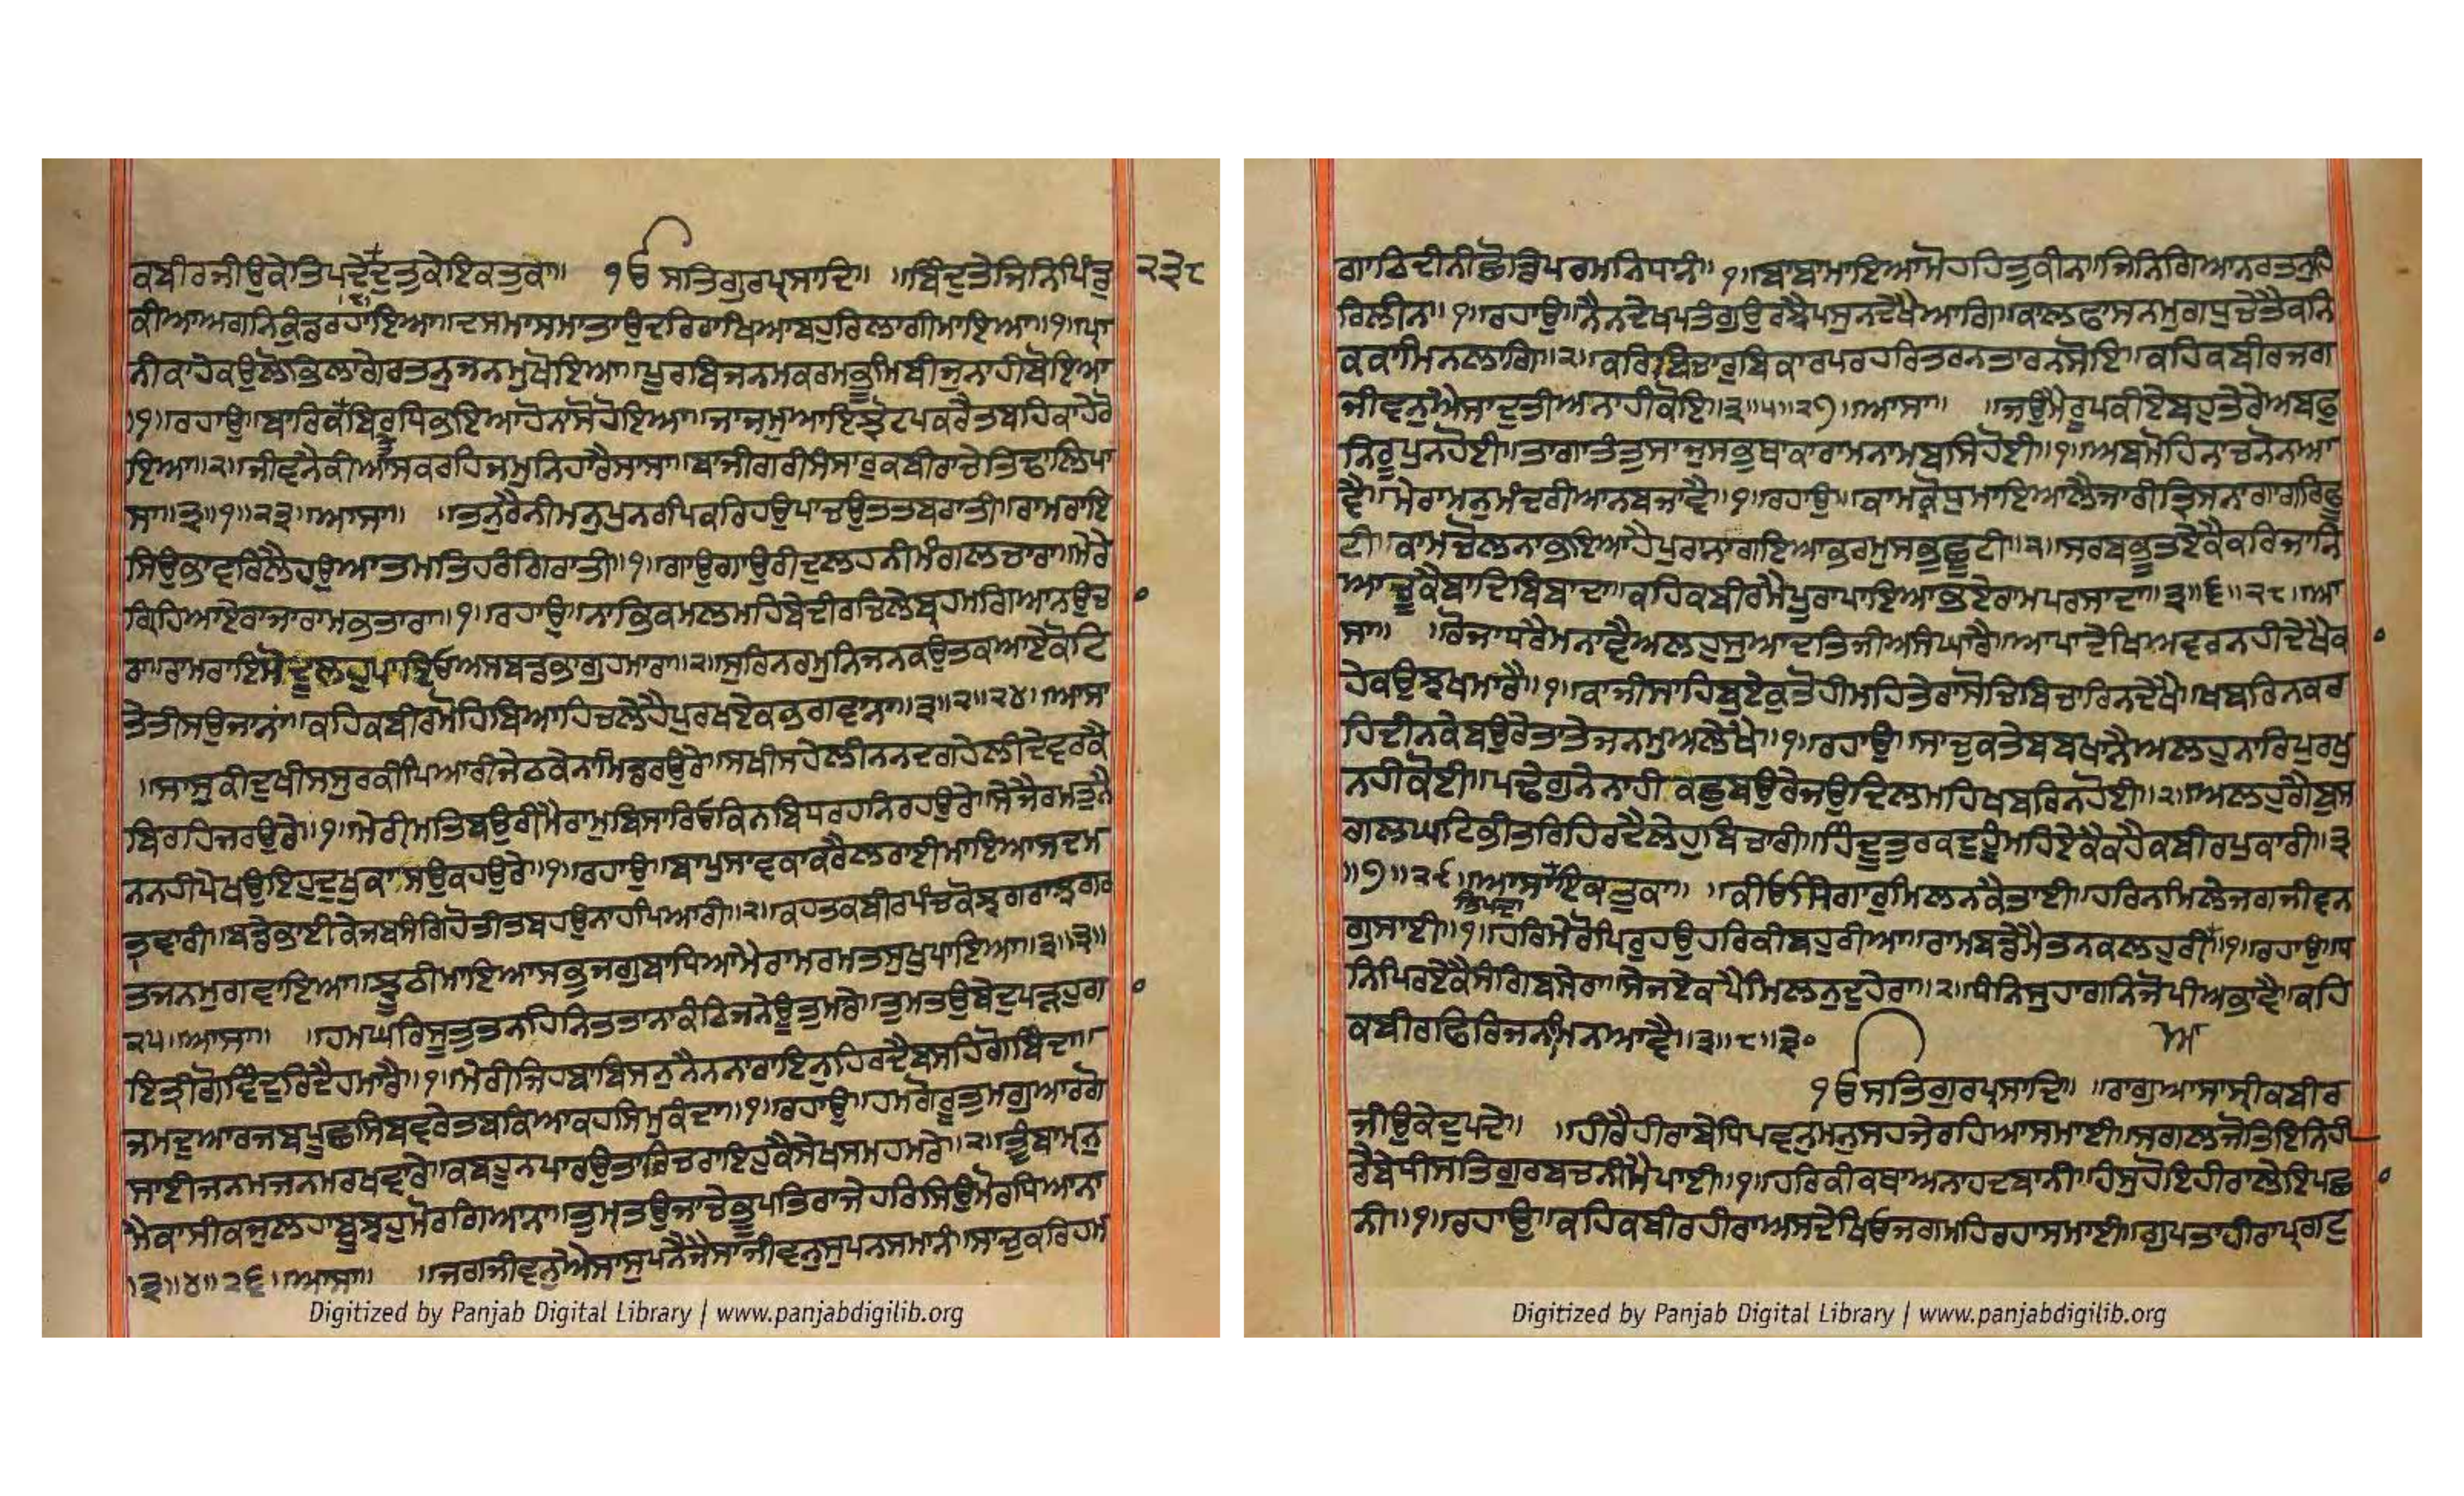 ਕਬੀਰਜੀਉਕੇਤਿਪਦੇਦੁਤੁਕੇਇਕਤੁਕਾ॥ ੧ੳ ਸਤਿਗੁਰਪ੍ਰਸਾਦਿ॥ ॥ਬਿੰਦੁਤੇਜਿਨਿਪਿੰਡੁ ੨੩੮
ਕੀਆਅਗਨਿਕੁੰਡਰਹਾਇਆ॥ਦਸਮਾਸਮਾਤਾਉਦਰਿਰਾਖਿਆਬਹੁਰਿਲਾਗੀਮਾਇਆ॥੧॥ਪ੍ਰਾ
ਨੀਕਾਹੇਕਉਲੋਭਿਲਾਗੇਰਤਨੁਜਨਮੁਖੋਇਆ॥ਪੂਰਬਿਜਨਮਕਰਮਭੂਮਿਬੀਜੁਨਾਹੀਬੋਇਆ
॥੧॥ਰਹਾਉ॥ਬਾਰਿਕਤੇਬਿਰਧਿਭਇਆਹੋਨਾਸੋਹੋਇਆ॥ਜਾਜਮੁਆਇਝੋਟਪਕਰੈਤਬਹਿਕਾਹੇਰੋ
ਇਆ॥੨॥ਜੀਵਨੈਕੀਆਸਕਰਹਿਜਮੁਨਿਹਾਰੈਸਾਸਾ॥ਬਾਜੀਗਰੀਸੰਸਾਰੁਕਬੀਰਾਚੇਤਿਢਾਲਿਪਾ
ਸਾ॥੩॥੧॥੨੩॥ਆਸਾ॥ ॥ਤਨੁਰੈਨੀਮਨੁਪੁਨਰਪਿਕਰਿਹਉਪਾਚਉਤਤਬਰਾਤੀ॥ਰਾਮਰਾਇ
ਸਿਉਭਾਵਰਿਲੈਹਉਆਤਮਤਿਹਰੰਗਿਰਾਤੀ॥੧॥ਗਾਉਗਾਉਰੀਦੁਲਹਨੀਮੰਗਲਚਾਰਾ॥ਮੇਰੇ
ਗ੍ਰਿਹਿਆਏਰਾਜਾਰਾਮਭਤਾਰਾ॥੧॥ਰਹਾਉ॥ਨਾਭਿਕਮਲਮਹਿਬੇਦੀਰਚਿਲੇਬ੍ਰਹਮਗਿਆਨਉਚ
ਰਾ॥ਰਾਮਰਾਇਸੋਦੂਲਹੁਪਾਇਓਅਸਬਡਭਾਗੁਹਮਾਰਾ॥੨॥ਸੁਰਿਨਰਮੁਨਿਜਨਕਉਤਕਆਏਕੋਟਿ
ਤੇਤੀਸਉਜਾਨਾਂ॥ਕਹਿਕਬੀਰਮੋਹਿਬਿਆਹਿਚਲੇਹੈਪੁਰਖਏਕਭਗਵਾਨਾ॥੩॥੨॥੨੪॥ਆਸਾ
॥ਸਾਸੁਕੀਦੁਖੀਸਸੁਰਕੀਪਿਆਰੀਜੇਠਕੇਨਾਮਿਡਰਉਰੇ॥ਸਖੀਸਹੇਲੀਨਨਦਗਹੇਲੀਦੇਵਰਕੈ
ਬਿਰਹਿਜਰਉਰੇ॥੧॥ਮੇਰੀਮਤਿਬਉਰੀਮੈਰਾਮੁਬਿਸਾਰਿਓਕਿਨਬਿਧਿਰਹਨਿਰਹਉਰੇ॥ਸੇਜੈਰਮਤੁਨੈ
ਨਨਹੀਪੇਖਉਇਹੁਦੁਖੁਕਾਸਉਕਹਉਰੇ॥੧॥ਰਹਾਉ॥ਬਾਪੁਸਾਵਕਾਕਰੈਲਰਾਈਮਾਇਆਸਦਮ
ਤਵਾਰੀ॥ਬਡੇਭਾਈਕੇਜਬਸੰਗਿਹੋਤੀਤਬਹਉਨਾਹਪਿਆਰੀ॥੨॥ਕਹਤਕਬੀਰਪੰਚਕੋਝਗਰਾਝਗਰ
ਤਜਨਮੁਗਵਾਇਆ॥ਝੂਠੀਮਾਇਆਸਭੁਜਗੁਬਾਧਿਆਮੈਰਾਮਰਮਤਸੁਖੁਪਾਇਆ॥੩॥੩॥
੨੫॥ਆਸਾ॥ ॥ਹਮਘਰਿਸੂਤੁਤਨਹਿਨਿਤਤਾਨਾਕੰਠਿਜਨੇਊਤੁਮਰੇ॥ਤੁਮਤਉਬੇਦੁਪੜਹੁਗ
ਇਤ੍ਰੀਗੋਵਿੰਦੁਰਿਦੈਹਮਾਰੈ॥੧॥ਮੇਰੀਜਿਹਬਾਬਿਸਨੁਨੈਨਨਾਰਾਇਨੁਹਿਰਦੈਬਸਹਿਗੋਬਿੰਦਾ॥
ਜਮਦੁਆਰਜਬਪੂਛਸਿਬਵਰੇਤਬਕਿਆਕਹਸਿਮੁਕੰਦਾ॥੧॥ਰਹਾਉ॥ਹਮਗੋਰੂਤੁਮਗੁਆਰਗੋ
ਸਾਈਜਨਮਜਨਮਰਖਵਾਰੇ॥ਕਬਹੂਨਪਾਰਉਤਾਰਿਚਰਾਇਹੁਕੈਸੇਖਸਮਹਮਰੇ॥੨॥ਤੂੰਬਾਮ੍ਹਨੁ
ਮੈਕਾਸੀਕਜੁਲਹਾਬੂਝਹੁਮੋਰਗਿਆਨਾ॥ਤੁਮ੍ਹਤਉਜਾਚੇਭੂਪਤਿਰਾਜੇਹਰਿਸਿਉਮੋਰਧਿਆਨਾ
॥੩॥੪॥੨੬॥ਆਸਾ॥ ॥ਜਗਜੀਵਨੁਐਸਾਸੁਪਨੈਜੈਸਾਜੀਵਨੁਸੁਪਨਸਮਾਨੰ॥ਸਾਚੁਕਰਿਹਮ
Digitized by Panjab Digital Library | www.panjabdigilib.org
ਗਾਠਿਦੀਨੀਛੋਡਿਪਰਮਨਿਧਾਨੰ॥੧॥ਬਾਬਾਮਾਇਆਮੋਹਹਿਤੁਕੀਨਾ॥ਜਿਨਿਗਿਆਨਰਤਨੁਹਿ
ਰਿਲੀਨਾ॥੧॥ਰਹਾਉ॥ਨੈਨਦੇਖਪਤੰਗੁਉਰਝੈਪਸੁਨਦੇਖੈਆਗਿ॥ਕਾਲਫਾਸਨਮੁਗਧੁਚੇਤੈਕਨਿ
ਕਕਾਮਿਨਲਾਗਿ॥੨॥ਕਰਿਬਿਚਾਰੁਬਿਕਾਰਪਰਹਰਿਤਰਨਤਾਰਨਸੋਇ॥ਕਹਿਕਬੀਰਜਗ
ਜੀਵਨੁਐਸਾਦੁਤੀਅਨਾਹੀਕੋਇ॥੩॥੫॥੨੭॥ਆਸਾ॥ ॥ਜਉਮੈਰੂਪਕੀਏਬਹੁਤੇਰੇਅਬਫੁ
ਨਿਰੂਪੁਨਹੋਈ॥ਤਾਗਾਤੰਤੁਸਾਜੁਸਭੁਥਾਕਾਰਾਮਨਾਮਬਸਿਹੋਈ॥੧॥ਅਬਮੋਹਿਨਾਚਨੋਨਆ
ਵੈ॥ਮੇਰਾਮਨੁਮੰਦਰੀਆਨਬਜਾਵੈ॥੧॥ਰਹਾਉ॥ਕਾਮਕ੍ਰੋਧੁਮਾਇਆਲੈਜਾਰੀਤ੍ਰਿਸਨਾਗਾਗਰਿਫੂ
ਟੀ॥ਕਾਮਚੋਲਨਾਭਇਆਹੈਪੁਰਾਨਾਗਇਆਭਰਮੁਸਭੁਛੂਟੀ॥੨॥ਸਰਬਭੂਤਏਕੈਕਰਿਜਾਨਿ
ਆਚੂਕੇਬਾਦਿਬਿਬਾਦਾ॥ਕਹਿਕਬੀਰਮੈਪੂਰਾਪਾਇਆਭਏਰਾਮਪਰਸਾਦਾ॥੩॥੬॥੨੮॥ਆ
ਸਾ॥ ॥ਰੋਜਾਧਰੈਮਨਾਵੈਅਲਹੁਸੁਆਦਤਿਜੀਅਸੰਘਾਰੈ॥ਆਪਾਦੇਖਿਅਵਰਨਹੀਦੇਖੈਕ
ਹੇਕਉਝਖਮਾਰੈ॥੧॥ਕਾਜੀਸਾਹਿਬੁਏਕੁਤੋਹੀਮਹਿਤੇਰਾਸੋਚਿਬਿਚਾਰਿਨਦੇਖੈ॥ਖਬਰਿਨਕਰ
ਹਿਦੀਨਕੇਬਉਰੇਤਾਤੇਜਨਮੁਅਲੇਖੈ॥੧॥ਰਹਾਉ॥ਸਾਚੁਕਤੇਬਬਖਾਨੈਅਲਹੁਨਾਰਿਪੁਰਖੁ
ਨਹੀਕੋਈ॥ਪਢੇਗੁਨੇਨਾਹੀਕਛੁਬਉਰੇਜਉਦਿਲਮਹਿਖਬਰਿਨਹੋਈ॥੨॥ਅਲਹੁਗੈਬੁਸ
ਗਲਘਟਿਭੀਤਰਿਹਿਰਦੈਲੇਹੁਬਿਚਾਰੀ॥ਹਿੰਦੂਤੁਰਕਦੁਹੂੰਮਹਿਏਕੈਕਹੈਕਬੀਰਪੁਕਾਰੀ॥੩
॥੭॥੨੯॥ਆਸਾਇਕਤੁਕਾ॥ ॥ਕੀਓਸਿੰਗਾਰੁਮਿਲਨਕੈਤਾਈ॥ਹਰਿਨਮਿਲੇਜਗਜੀਵਨ
ਤਿਪਦਾ
ਗੁਸਾਈ॥੧॥ਹਰਿਮੇਰੋਪਿਰੁਹਉਹਰਿਕੀਬਹੁਰੀਆ॥ਰਾਮਬਡੇਮੈਤਨਕਲਹੁਰੀਆ॥੧॥ਰਹਾਉ॥ਧ
ਨਿਪਿਰਏਕੈਸੰਗਿਬਸੇਰਾ॥ਸੇਜਏਕਪੈਮਿਲਨੁਦੁਹੇਰਾ॥੨॥ਧੰਨਿਸੁਹਾਗਨਿਜੋਪੀਅਭਾਵੈ॥ਕਹਿ
ਕਬੀਰਫਿਰਿਜਨਮਿਨਆਵੈ॥੩॥੮॥੩੦
੧ੳਸਤਿਗੁਰਪ੍ਰਸਾਦਿ॥ ॥ਰਾਗੁਆਸਾਸ੍ਰੀਕਬੀਰ
ਜੀਉਕੇਦੁਪਦੇ॥ ॥ਹੀਰੈਹੀਰਾਬੇਧਿਪਵਨੁਮਨੁਸਹਜੇਰਹਿਆਸਮਾਈ॥ਸਗਲਜੋਤਿਇਨਿਹੀ
ਰੈਬੇਧੀਸਤਿਗੁਰਬਚਨੀਮੈਪਾਈ॥੧॥ਹਰਿਕੀਕਥਾਅਨਾਹਦਬਾਨੀ॥ਹੰਸੁਹੋਇਹੀਰਾਲੇਇਪਛਾ
ਨੀ॥੧॥ਰਹਾਉ॥ਕਹਿਕਬੀਰਹੀਰਾਅਸਦੇਖਿਓਜਗਮਹਿਰਹਾਸਮਾਈ॥ਗੁਪਤਾਹੀਰਾਪ੍ਰਗਟੁ
Digitized by Panjab Digital Library | www.panjabdigilib.org